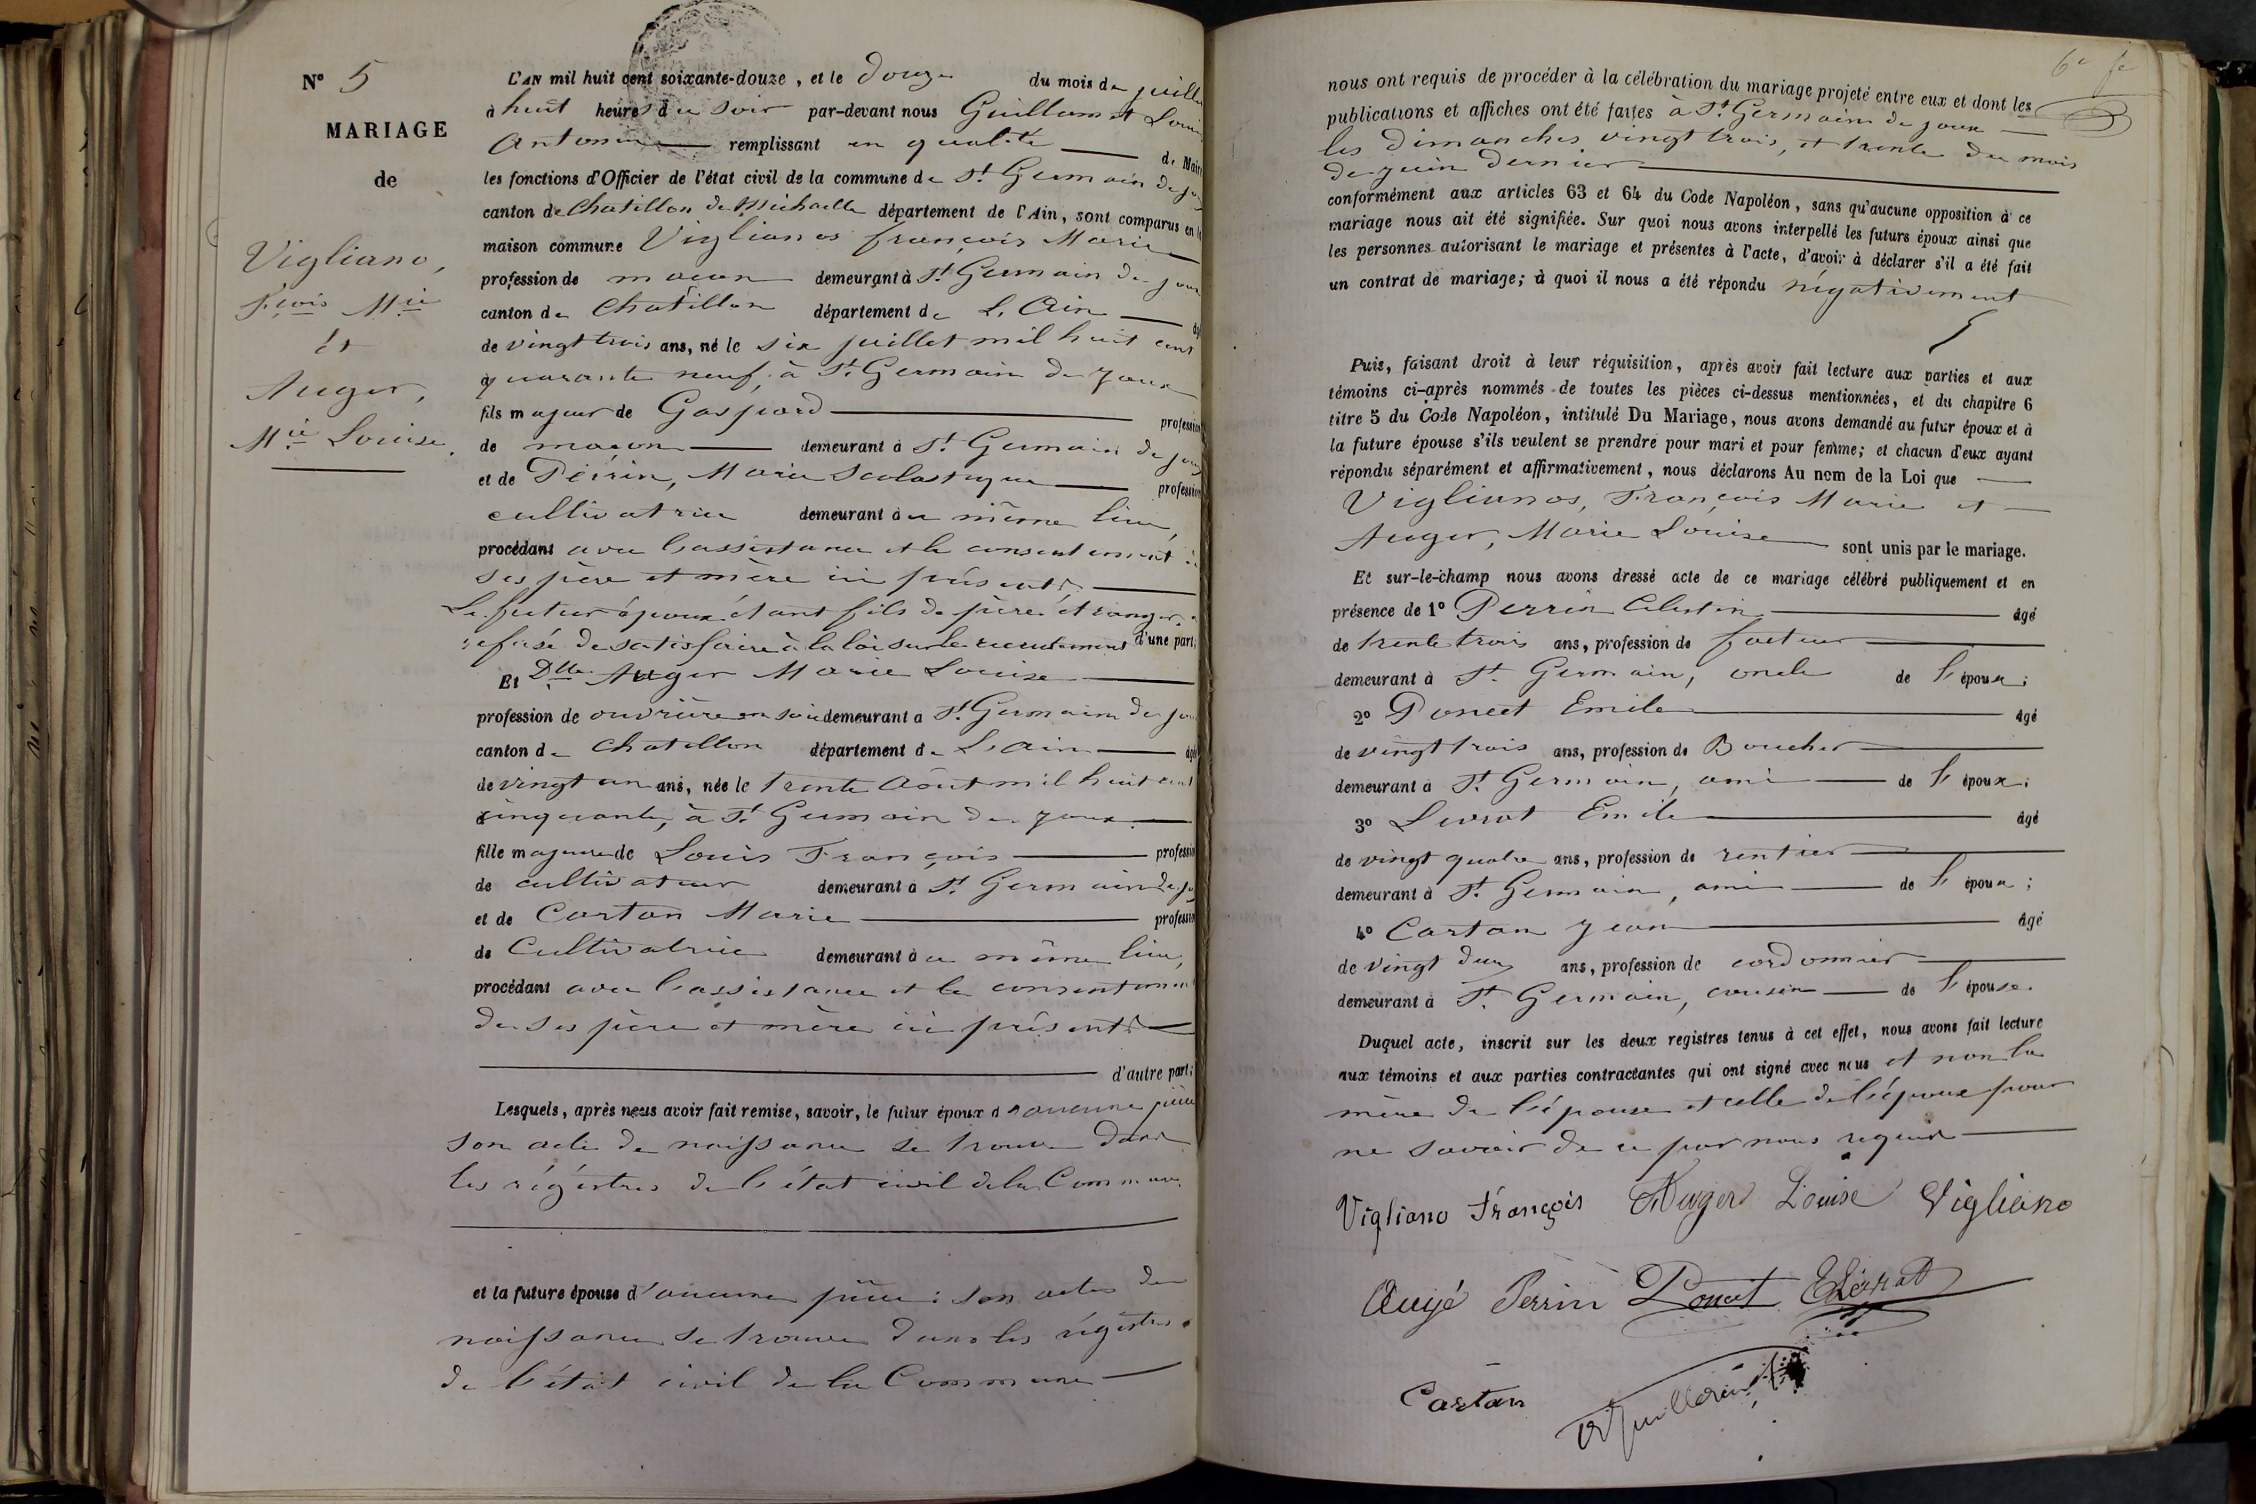 N° 5
MARIAGE
de
Vigliano,
Fçois Mie
et
Auger,
Mie Louise.
L'AN mil huit cent soixante-douze, et le douze du mois de juillet
à huit heures du soir par-devant nous Guillermet Louis
Antoine remplissant en qualité de Maire
les fonctions d'Officier de l'état civil de la commune de St Germain de Joux
canton de Chatillon de Michaille département de l'Ain, sont comparus en la
maison commune Viglianos françois Marie
profession de maçon demeurant à St Germain de Joux
canton de Chatillon département de L'Ain âgé
de vingt trois ans, né le six juillet mil huit cent
quarante neuf, à St Germain de Joux
fils majeur de Gaspard profession
de maçon demeurant à St Germain de Joux
et de Perrin, Marie Scolastique profession
cultivatrice demeurant à ce même lieu,
procédant avec l'assistance et le consentement de
ses père et mère ici présents
Le futur époux étant fils de père étranger, a
refusé de satisfaire à la loi sur le recrutement d'une part;
Et Dlle Auger Marie Louise
profession de ouvrière en soie demeurant à St Germain de Joux
canton de Chatillon département de L'Ain âgée
de vingt un ans, née le trente Août mil huit cent
cinquante, à St Germain de Joux
fille majeure de Louis François profession
de cultivateur demeurant à St Germain de Joux
et de Cartan Marie profession
de Cultivatrice demeurant à ce même lieu,
procédant avec l'assistance et le consentement
de ses père et mère ici présents
d'autre part;
Lesquels, après nous avoir fait remise, savoir, le futur époux d'aucune pièce
son acte de naissance se trouve dans
les régistres de l'état civil de la Commune
et la future épouse d'aucune pièce: son acte de
naissance se trouve dans les régistres
de l'état civil de la Commune
nous ont requis de procéder à la célébration du mariage projeté entre eux et dont les
publications et affiches ont été faites à St Germain de joux
les Dimanches vingt trois, et trente du mois
de juin dernier
conformément aux articles 63 et 64 du Code Napoléon, sans qu'aucune opposition à ce
mariage nous ait été signifiée. Sur quoi nous avons interpellé les futurs époux ainsi que
les personnes autorisant le mariage et présentes à l'acte, d'avoir à déclarer s'il a été fait
un contrat de mariage; à quoi il nous a été répondu négativement
Puis, faisant droit à leur réquisition, après avoir fait lecture aux parties et aux
témoins ci-après nommés de toutes les pièces ci-dessus mentionnées, et du chapitre 6
titre 5 du Code Napoléon, intitulé Du Mariage, nous avons demandé au futur époux et à
la future épouse s'ils veulent se prendre pour mari et pour femme; et chacun d'eux ayant
répondu séparément et affirmativement, nous déclarons Au nom de la Loi que
Viglianos, François Marie et
Auger, Marie Louise sont unis par le mariage.
Et sur-le-champ nous avons dressé acte de ce mariage célébré publiquement et en
présence de 1° Perrin Célestin âgé
de trente trois ans, profession de facteur
demeurant à St Germain, oncle de l'époux;
2° Poncet Emile âgé
de vingt trois ans, profession de Boucher
demeurant à St Germain, ami de l'époux;
3° Livrat Emile âgé
de vingt quatre ans, profession de rentier
demeurant à St Germain, ami de l'époux;
4° Cartan Jean âgé
de vingt deux ans, profession de cordonnier
demeurant à St Germain, cousin de l'épouse.
Duquel acte, inscrit sur les deux registres tenus à cet effet, nous avons fait lecture
aux témoins et aux parties contractantes qui ont signé avec nous et non la
mère de l'épouse et celle de l'époux pour
ne savoir de ce par nous requis
Vigliano François Auger Louise Vigliano
Augé Perrin Poncet ELivrat
Cartan Guillermet